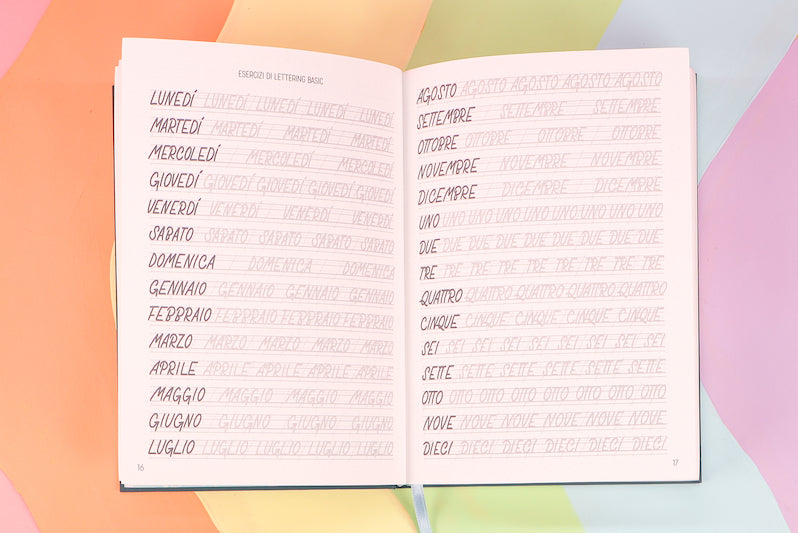 ESERCIZI DI LETTERING BASIC
LUNEDÍ LUNEDÍ LUNEDÍ LUNEDÍ LUNEDÍ
MARTEDÍ MARTEDÍ MARTEDÍ MARTEDÍ
MERCOLEDÍ MERCOLEDÍ MERCOLEDÍ
GIOVEDÍ GIOVEDÍ GIOVEDÍ GIOVEDÍ GIOVEDÍ
VENERDÍ VENERDÍ VENERDÍ VENERDÍ
SABATO SABATO SABATO SABATO SABATO
DOMENICA DOMENICA DOMENICA
GENNAIO GENNAIO GENNAIO GENNAIO
FEBBRAIO FEBBRAIO FEBBRAIO FEBBRAIO
MARZO MARZO MARZO MARZO MARZO
APRILE APRILE APRILE APRILE APRILE
MAGGIO MAGGIO MAGGIO MAGGIO
GIUGNO GIUGNO GIUGNO GIUGNO
LUGLIO LUGLIO LUGLIO LUGLIO LUGLIO
16
AGOSTO AGOSTO AGOSTO AGOSTO AGOSTO
SETTEMBRE SETTEMBRE SETTEMBRE
OTTOBRE OTTOBRE OTTOBRE OTTOBRE
NOVEMBRE NOVEMBRE NOVEMBRE
DICEMBRE DICEMBRE DICEMBRE
UNO UNO UNO UNO UNO UNO UNO UNO UNO
DUE DUE DUE DUE DUE DUE DUE DUE DUE
TRE TRE TRE TRE TRE TRE TRE TRE TRE
QUATTRO QUATTRO QUATTRO QUATTRO QUATTRO
CINQUE CINQUE CINQUE CINQUE CINQUE
SEI SEI SEI SEI SEI SEI SEI SEI SEI
SETTE SETTE SETTE SETTE SETTE SETTE
OTTO OTTO OTTO OTTO OTTO OTTO OTTO
NOVE NOVE NOVE NOVE NOVE NOVE
DIECI DIECI DIECI DIECI DIECI
17